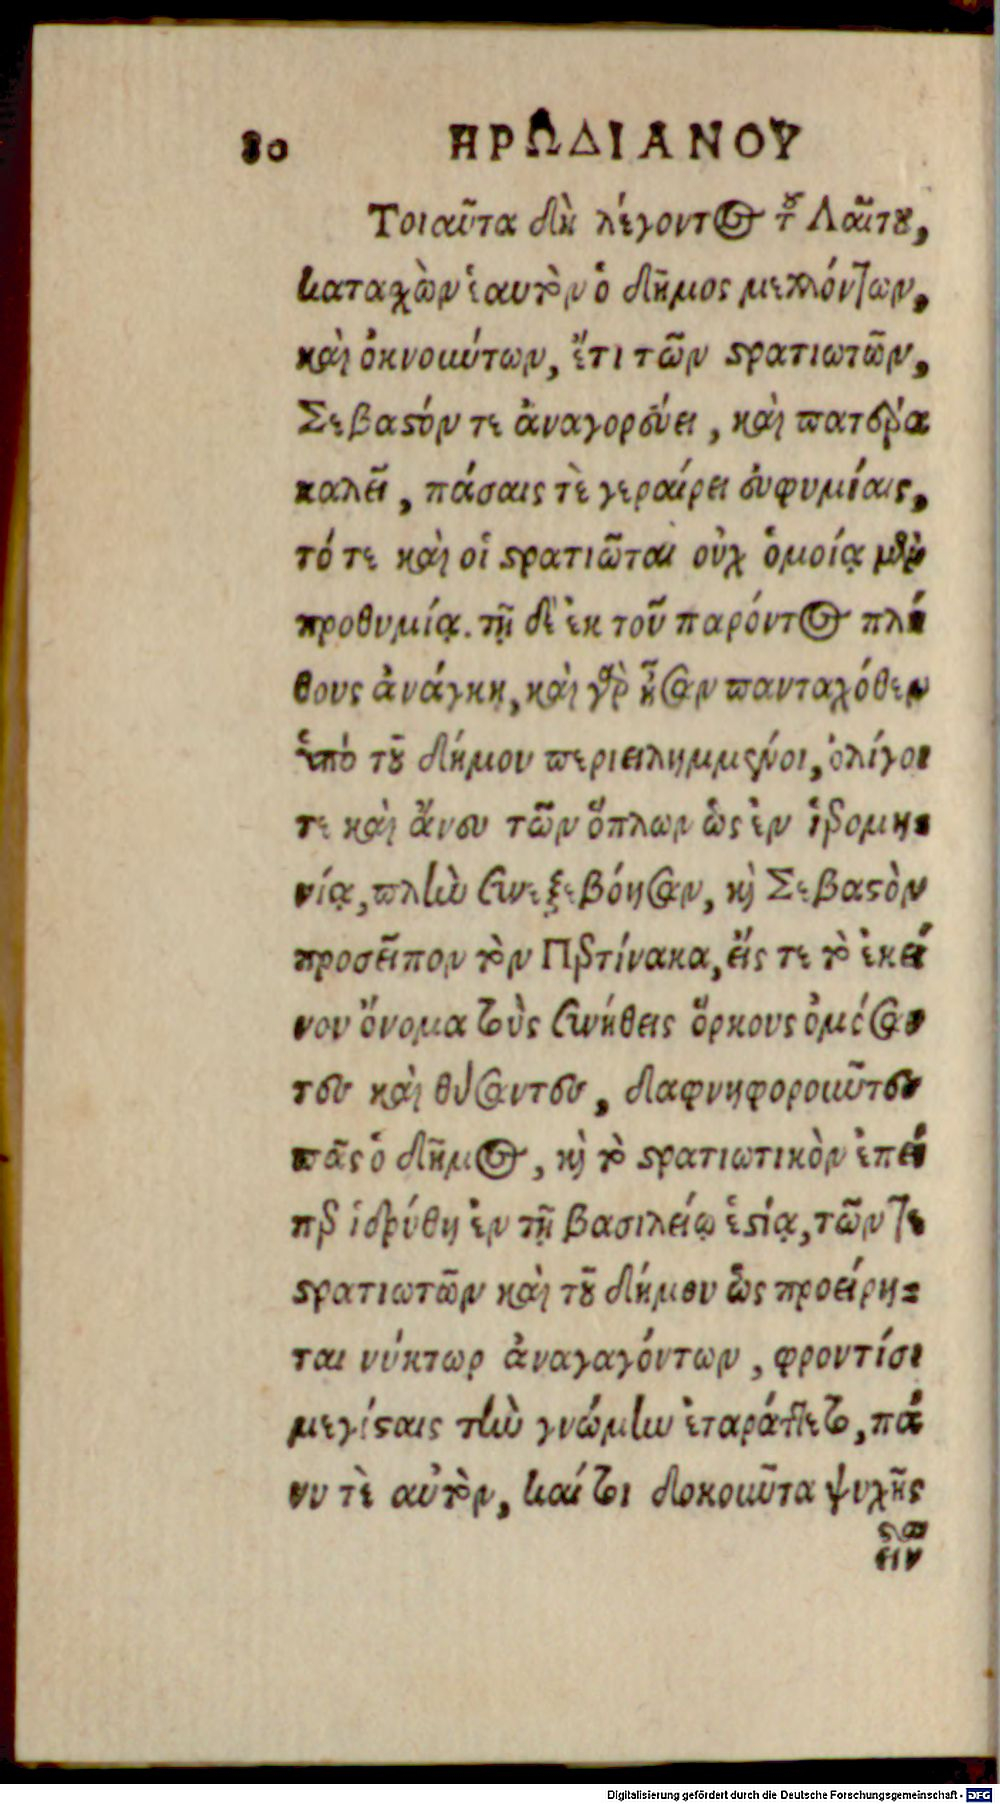 80 ΗΡΩΔΙΑΝΟΥ
Τοιαῦτα δὴ λέγοντος τοῦ Λαίτου,
καταχὼν ἑαυτὸν ὁ δῆμος μελλόντων,
καὶ ὀκνούντων, ἔτι τῶν στρατιωτῶν,
Σεβαστόν τε ἀναγορεύει, καὶ πατέρα
καλεῖ, πάσαις τὲ γεραίρει εὐφυμίαις,
τότε καὶ οἱ στρατιῶται οὐχ ὁμοίᾳ μὲν
προθυμίᾳ. τῇ δὲ ἐκ τοῦ παρόντος πλή
θους ἀνάγκῃ, καὶ γὰρ ἦσαν πανταχόθεν
ὑπὸ τοῦ δήμου περιειλημμένοι, ὀλίγοι
τε καὶ ἄνευ τῶν ὅπλων ὡς ἐν ἱερομη-
νίᾳ, πλὴν συνεξεβόησαν, καὶ Σεβαστὸν
προσεῖπον τὸν Περτίνακα, εἴς τε τὸ ἐκεί
νου ὄνομα τοὺς συνήθεις ὅρκους ὀμόσαν
τες καὶ θύσαντες, δαφνηφοροῦντες
πᾶς ὁ δῆμος, καὶ τὸ στρατιωτικὸν ἐπεὶ
περ ἱδρύθη ἐν τῇ βασιλείῳ ἑστίᾳ, τῶν τε
στρατιωτῶν καὶ τοῦ δήμου ὡς προείρη-
ται νύκτωρ ἀναγαγόντων, φροντίσι
μεγίσταις τὴν γνώμην ἐταράττετο, πά
νυ τὲ αὐτὸν, καίτοι δοκοῦντα ψυχῆς
στα
ειν
Digitalisierung gefördert durch die Deutsche Forschungsgemeinschaft - DFG